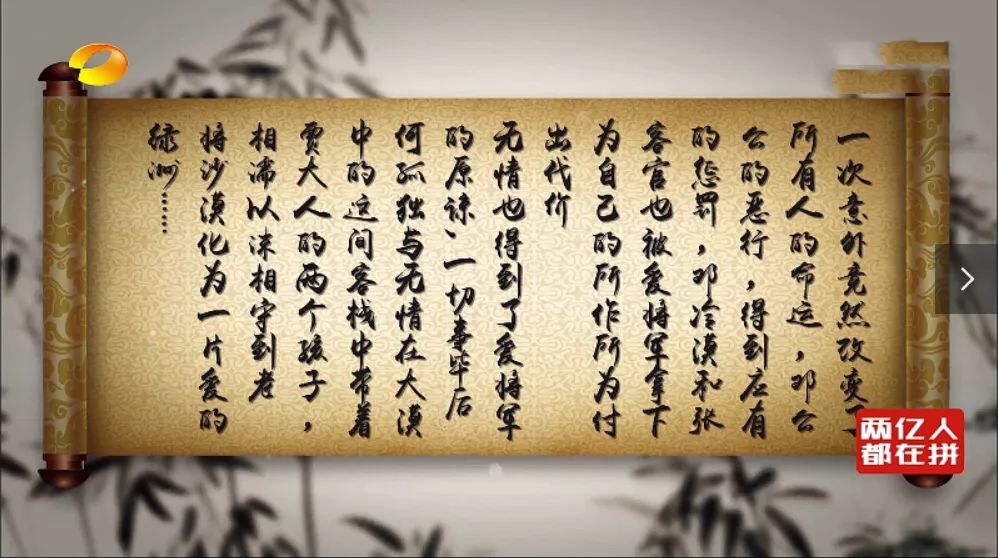 一次意外竟然改变了
所有人的命运，邓公
公的恶行，得到应有
的惩罚，邓冷漠和张
客官也被爱将军拿下
为自己的所作所为付
出代价
无情也得到了爱将军
的原谅、一切事毕后
何孤独与无情在大漠
中的这间客栈中带着
贾大人的两个孩子，
相濡以沫相守到老
将沙漠化为一片爱的
绿洲……
两亿人
都在拼